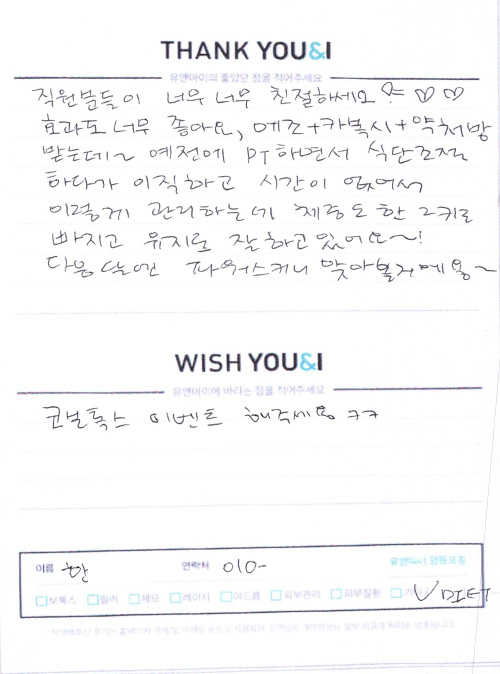 THANK YOU&I
유앤아이의 좋았던 점을 적어주세요
직원분들이 너무 너무 친절하세요 ♡♡
효과도 너무 좋아요, 메조+카복시+약처방
받는데~ 예전에 PT하면서 식단조절
하다가 이직하고 시간이 없어서
이렇게 관리하는데 체중도 한 2키로
빠지고 유지도 잘하고있어요~!
다음달엔 파워스키니 맞아볼거에용~
WISH YOU&I
유앤아이에 바라는 점을 적어주세요
코볼톡스 이벤트 해주세용 ㅋㅋ
이름 한 연락처 010-
보톡스 필러 제모 레이저 여드름 피부관리 피부질환